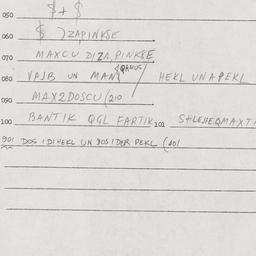 050 $ + $
060 $ ) ZAPINKSE
070 MAXCU DIZA, PINKSE
080 VAJB UN MAN HEKL UN A PEKL
090 MAX2DOSCU / 210
100 BANTIK QGL FARTIK 101 SHLEHEQMAXT
901 DOS IDIHEKL UN DOS IDER PEKL (401